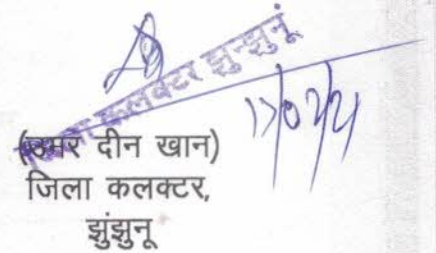 जिला कलक्टर झुन्झुनूं
17/02/21
(उमर दीन खान)
जिला कलक्टर,
झुंझुनू